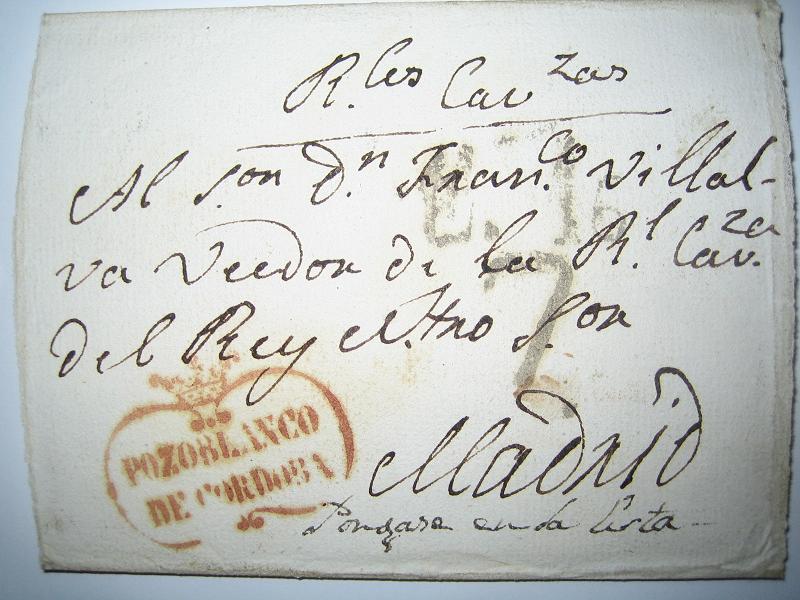 R.les Cav.zas
Al S.or d.n Fran.co Villal-
va Veedor de la R.l Cav.za
del Rey Ntro S.or
7
Madrid
POZOBLANCO
DE CORDOBA
Pongase en la lista